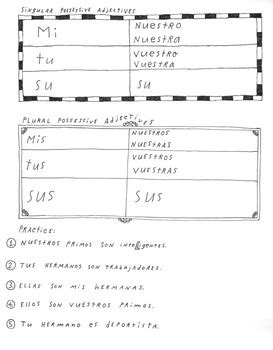 Singular Possessive Adjectives
Mi
Nuestro
Nuestra
tu
Vuestro
Vuestra
su
su
Plural Possessive Adjectives
Mis
Nuestros
Nuestras
tus
Vuestros
Vuestras
sus
sus
Practice:
① Nuestros primos son inteligentes.
② Tus hermanos son trabajadores.
③ Ellas son mis hermanas.
④ Ellos son vuestros primos.
⑤ Tu hermano es deportista.